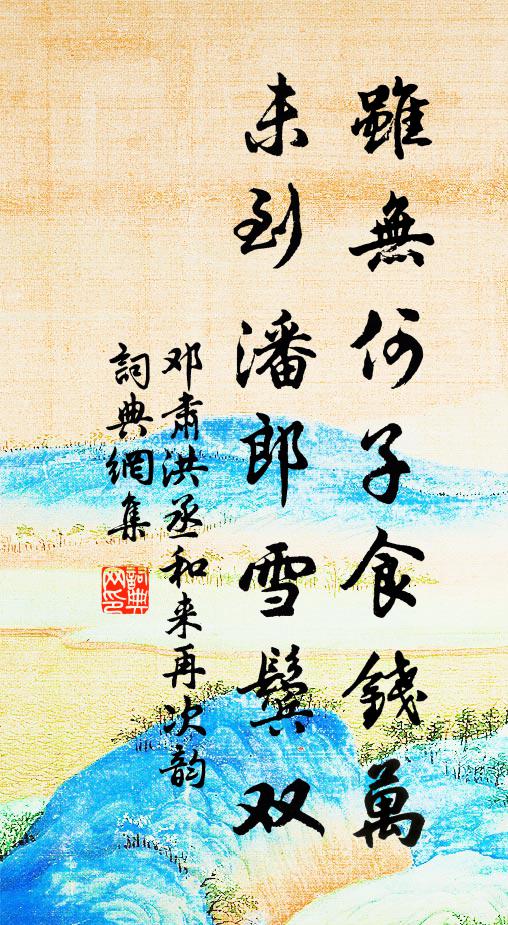 雖無何子食錢萬
未到潘郎雪鬓双
邓肅洪丞和来再次韵
詞典網集
詞典網印